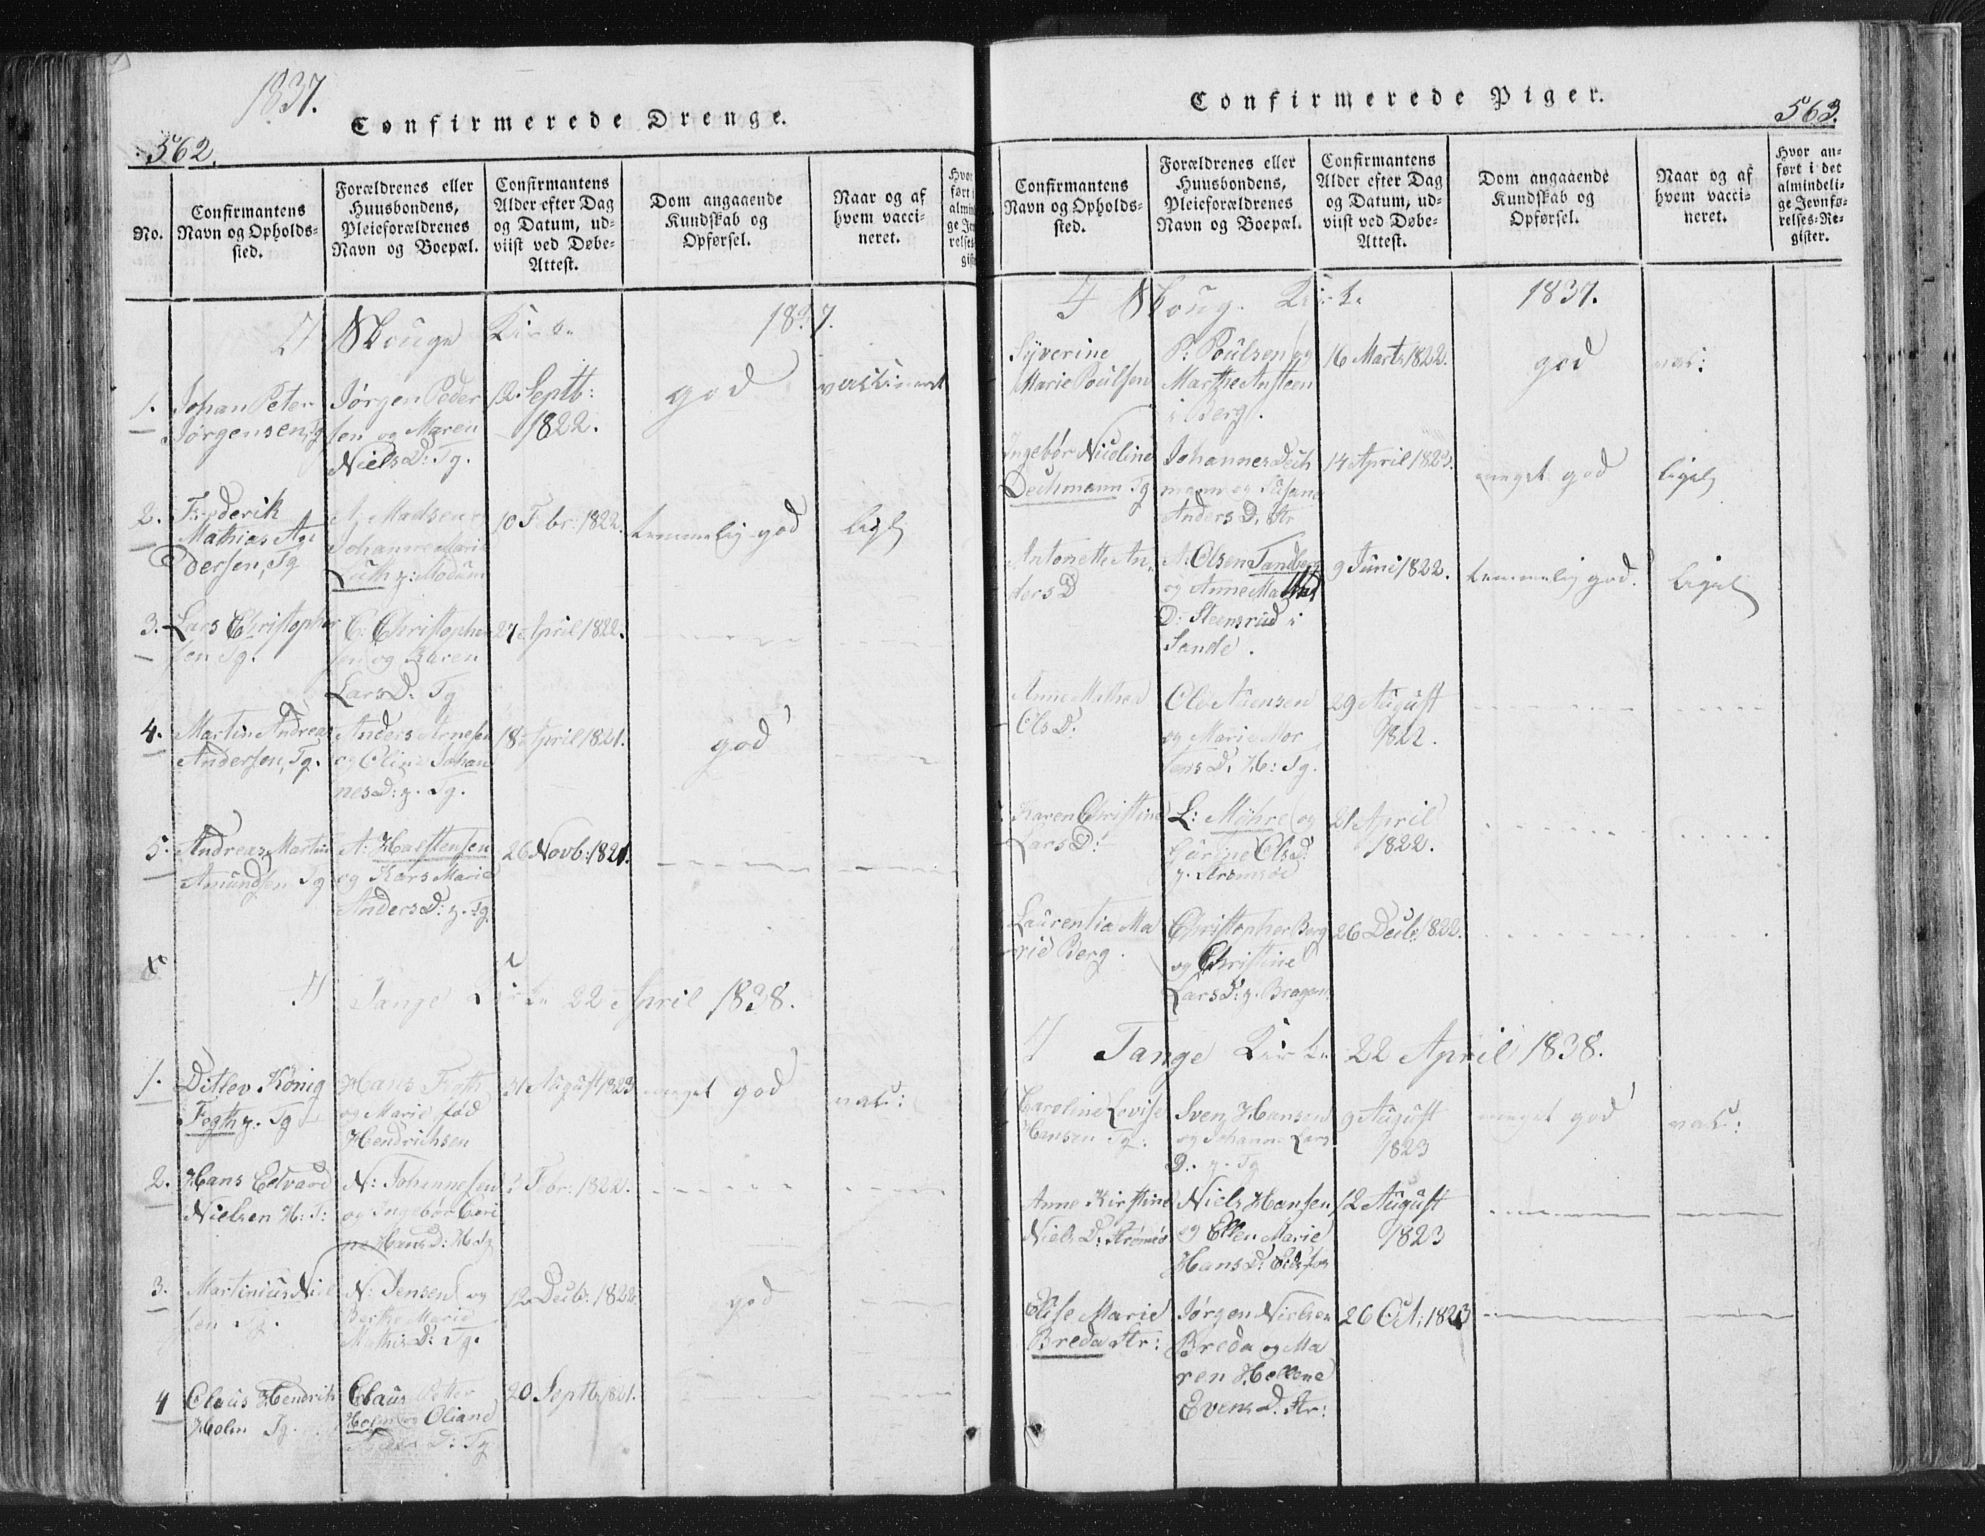 1837.
Confirmerede Drenge.
562.
No.
Confirmantens
Navn og Opholds-
sted.
Forældrenes eller
Huusbondens,
Pleieforældrenes
Navn og Boepæl.
Confirmantens
Alder efter Dag
og Datum, ud-
viist ved Døbe-
Attest.
Dom angaaende
Kundskab og
Opførsel.
Naar og af
hvem vacci-
neret.
Skouge Kirke 1837.
1. Johan Peter
Jørgensen, Tg
Jørgen Peder
sen og Maren
NielsD: Tg.
12. Septb:
1822.
god
vaccineret
2. Frederik
Mathias An
dersen, Tg
A: Madsen
Johanne Marie
Luth z: Modum
10 Febr: 1822.
temmelig god
ligel
3. Lars Christopher
sen Tg.
C: Christopher
sen og Karen
LarsD: Tg
27 April 1822.
4. Martin Andreas
Andersen, Tg.
Anders Arnesen
og Oline Johan
nesD: z. Tg.
18 April 1821.
god
5. Andreas Martin
Amundsen Tg
A: Karstensen
og Kars Marie
AndersD: z. Tg.
26 Novb: 1821.
Tange Kirke 22 April 1838.
1. Ditlev König
Fogth z. Tg
Hans Fogth
og Marie fød
Hendrichsen
31 August 1823
meget god
vac:
2. Hans Edvard
Nielsen H: T:
N: Johannesen
og Ingebør
HansD:
Febr: 1822.
3. Martinius Niel
sen Tg.
N: Jensen og
Berthe Marie
MathisD: Tg.
12 Decbr: 1822
god
4 Claus Hendrik
Holm Tg.
Claus Petter
Holm og Oliane
D: Tg
20 Septb 1821.
Confirmerede Piger.
563.
Confirmantens
Navn og Opholds-
sted.
Forældrenes eller
Huusbondens,
Pleieforældrenes
Navn og Boepæl.
Confirmantens
Alder efter Dag
og Datum, ud-
viist ved Døbe-
Attest.
Dom angaaende
Kundskab og
Opførsel.
Naar og af
hvem vacci-
neret.
Hvor an-
ført i det
almindeli-
ge Jevnfø-
relses-Re-
gister.
Skoug. Kirke 1837.
Syverine
Marie Poulsen
P: Poulsen og
Marthe Ansteen
i Berg.
16 Marts 1822.
god
vac:
Ingebør Nicoline
Dechmann Tg
Johannes Dech
mann og Susane
Anders D. Str
14 April 1823.
meget god
ligel
Antonette An
ders D
A: Olsen Tandberg
og Anne Ma
D: Steensrud i
Sande.
9 Juni 1822.
temmelig god.
ligel
Anne Mathea
OlsD:
Ole
og Marie Mor
tensD: H: Tg.
29 August
1822.
Karen Christine
LarsD:
L: Möhre og
OlsD:
z. Strømsøe
21 April
1822.
Laurentia Ma
rie Berg.
Christopher Berg
og Christine
LarsD: z. Bragen:
26 Decb. 1822.
Tange Kirke 22 April 1838.
Caroline Lovise
Hansen Tg.
Sven Hansen
og Johanne Lars
D: z. Tg
9 August
1823
meget god
vac:
Anne Kirstine
Niels D: Strømsø
Niels Hansen
og Ellen Marie
HansD:
12 August
1823
Elise Marie
Breda Str:
Jørgen Nielsen
Breda og Ma
ren Helene
EvensD. Str:
26 Oct: 1823